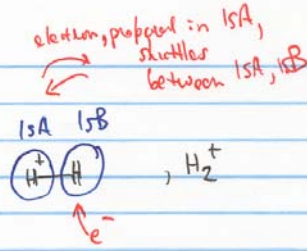 electron, prepared in 1sA,
shuttles
between 1sA, 1sB
1sA 1sB
H⁺ H , H₂⁺
e⁻